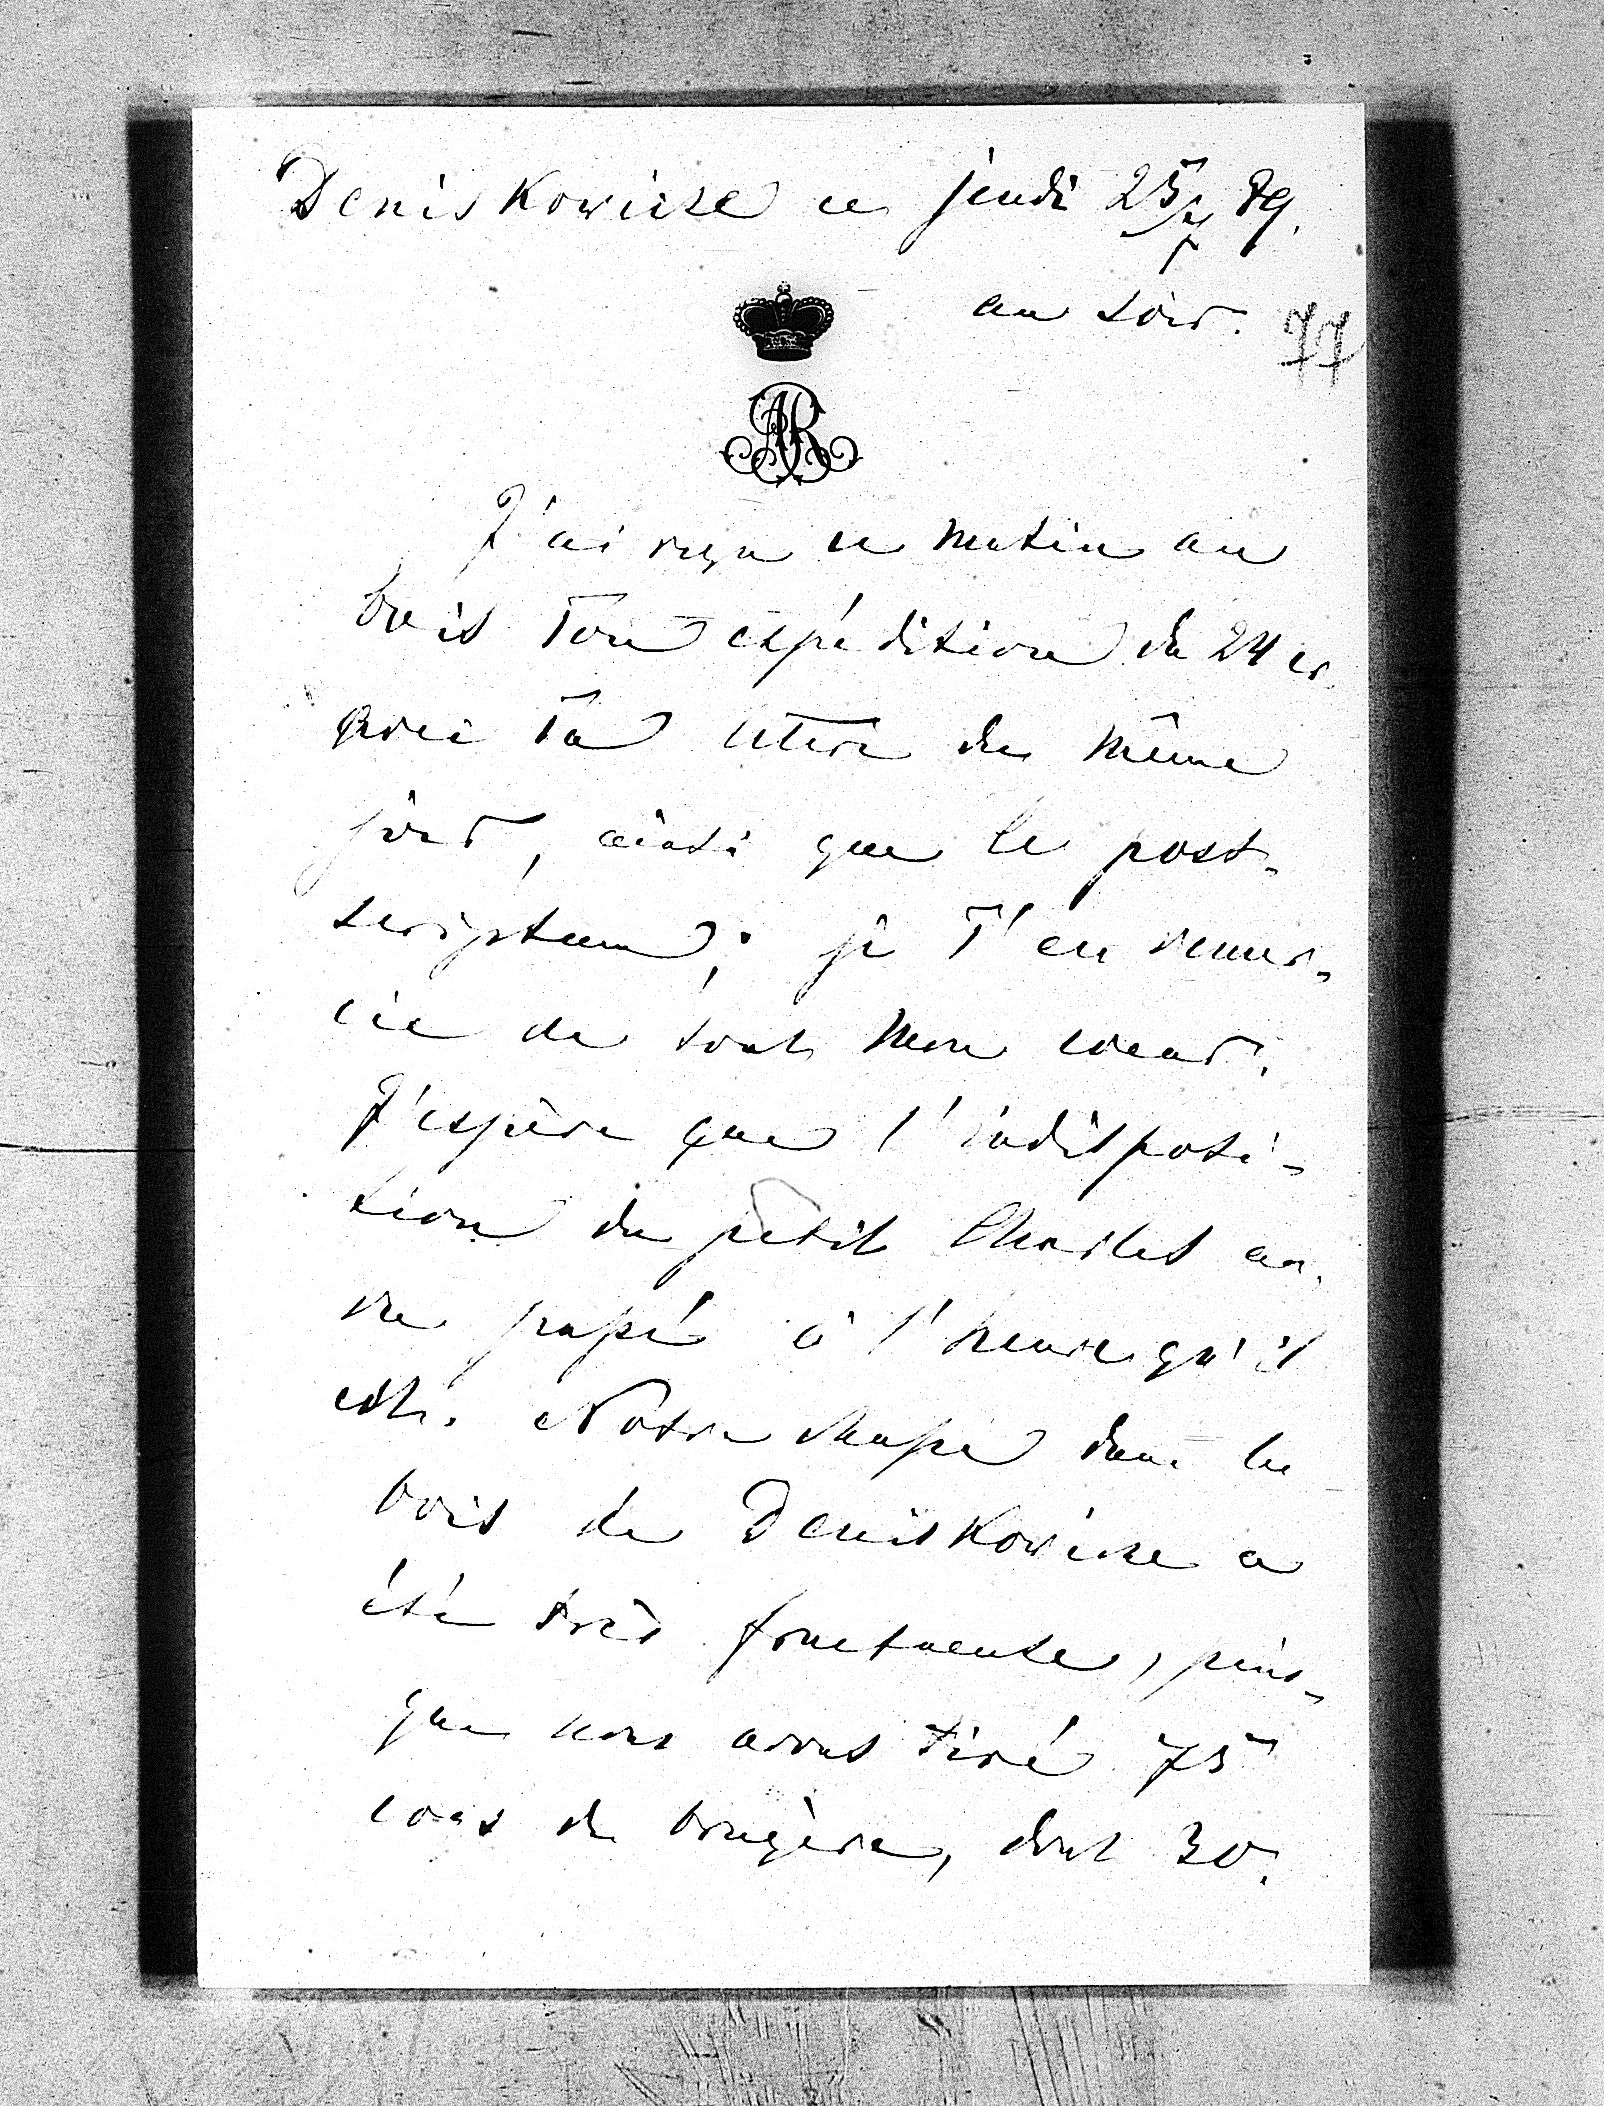 Deniskowicze ce jeudi 25/7 89.
au soir. 77
AR
J'ai reçu ce matin au
bois Ton expédition du 24 cr
avec Ta lettre du même
jour, ainsi que le post-
scriptum; je T'en remer-
cie de tout mon coeur.
J'espère que l'indisposi-
tion du petit Charles au-
ra passé à l'heure qu'il
est. Notre chasse dans les
bois de Deniskowicze a
été très fructueuse, puis-
que nous avons tiré 75
coqs de bruyère, dont 30.